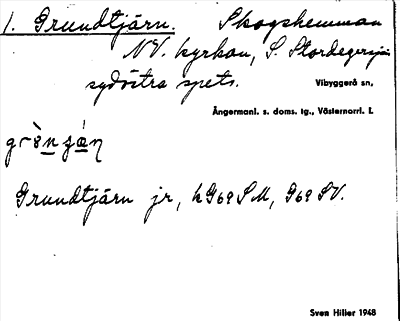 1. Grundtjärn. Skogshemman
NV. kyrkan, S. Stordegersjöns
sydöstra spets.
Vibyggerå sn,
Ångermanl. s. doms. tg., Västernorrl. l.
Grundtjärn jr, hG69SM, G69SV.
Sven Hiller 1948